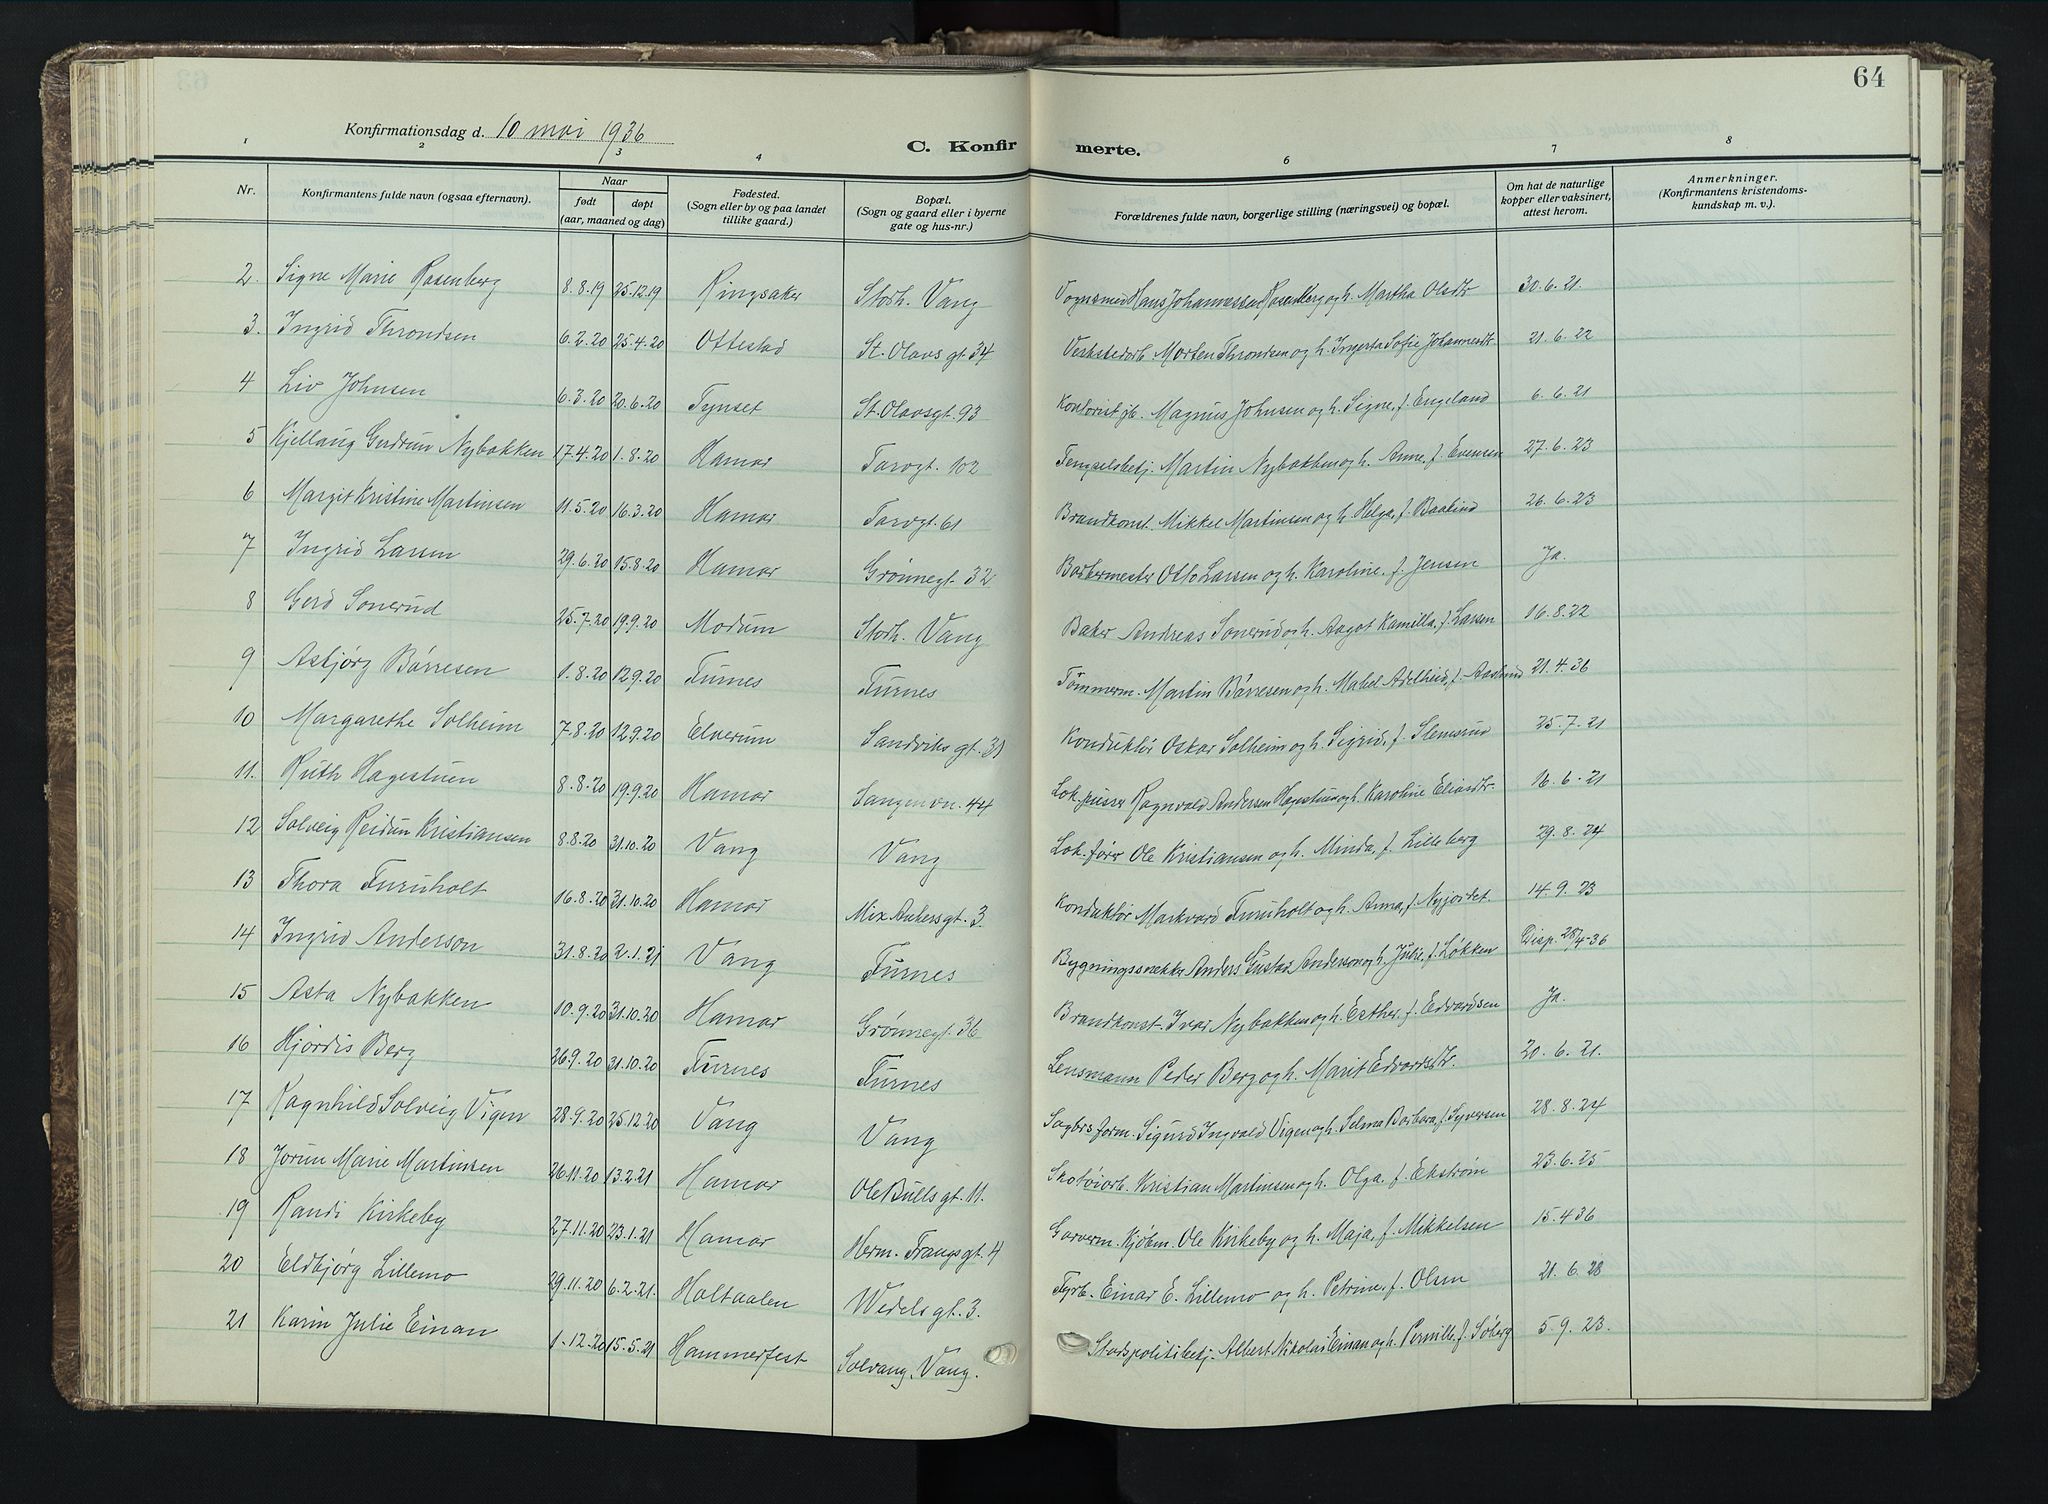 64
Konfirmationsdag d. 10 mai 1936
C. Konfirmerte.
1 2 3 4 6 7 8
Nr. Konfirmantens fulde navn (ogsaa efternavn). Naar født døpt (aar, maaned og dag) Fødested. (Sogn eller by og paa landet tillike gaard.) Bopæl. (Sogn og gaard eller i byerne gate og hus-nr.) Forældrenes fulde navn, borgerlige stilling (næringsvei) og bopæl. Om hat de naturlige kopper eller vaksinert, attest herom. Anmerkninger. (Konfirmantens kristendoms-kundskap m. v.).
2. Signe Marie Rosenberg 8.8.19 25.12.19 Ringsaker Storh. Vang Vognsmed Hans Johannessen Rosenberg og h. Martha Olsdtr 30.6.21.
3. Ingrid Throndsen 6.2.20 25.4.20 Ottestad St. Olavs gt. 34 Verkstedarb. Morten Throndsen og h. Ingerta Sofie Johannesdtr 21.6.22
4 Liv Johnsen 6.3.20 20.6.20 Tynset St. Olavsgt. 93 Kontorist jb. Magnus Johnsen og h. Signe, f. Engeland 6.6.21
5 Kjellaug Gerdrum Nybakken 17.4.20 1.8.20 Hamar Torvgt. 102 Fengselsbetj. Martin Nybakken og h. Anne, f. Evensen 27.6.23
6 Margit Kristine Martinsen 11.5.20 16.3.20 Hamar Torvgt. 61 Brandkonst. Mikkel Martinsen og h. Helga, f. 26.6.23
7 Ingrid Larsen 29.6.20 15.8.20 Hamar Grønnegt. 32 Barbermester Otto Larsen og h. Karoline, f. Jensen Ja.
8 Gerd Sonerud 25.7.20 19.9.20 Modum Storh. Vang Baker Andreas Sonerud og h. Aagot Kamilla, f. Larsen 16.8.22
9 Asbjørg Børresen 1.8.20 12.9.20 Furnes Furnes Tømmerm. Martin Børresen og h. Mabel Adelheid, f. Aaslund 21.4.36
10 Margarethe Solheim 7.8.20 12.9.20 Elverum Sandviks gt. 31 Konduktør Oskar Solheim og h. Sigrid, f. Slemsrud 25.7.21
11. Ruth Hagestuen 8.8.20 19.9.20 Hamar Sangenvn. 44 Lok.pusser Ragnvald Andersen Hagestuen og h. Karoline Eliasdtr. 16.6.21
12 Solveig Reidun Kristiansen 8.8.20 31.10.20 Vang Vang Lok.-fører Ole Kristiansen og h. Minda, f. Lilleberg 29.8.24
13 Thora Furuholt 16.8.20 31.10.20 Hamar Mix Ankersgt. 3 Konduktør Markvard Furuholt og h. Anna, f. Nyjordet. 14.9.23
14 Ingrid Anderson 31.8.20 2.1.21 Vang Furnes Bygningssnekker Anders Gustav Anderson og h. Julie, f. Løkken Disp. 28/4-36
15 Asta Nybakken 10.9.20 31.10.20 Hamar Grønnegt. 36 Brandkonst. Ivar Nybakken og h. Esther, f. Edvardsen Ja.
16 Hjørdis Berg 26.9.20 31.10.20 Furnes Furnes Lensmann Peder Berg og h. Marit Edvardsdtr. 20.6.21.
17 Ragnhild Solveig Vigen 28.9.20 25.12.20 Vang Vang Sagbrs.form. Sigurd Ingvald Vigen og h. Selma Barbara, f. Syversen 28.8.24
18 Jorun Marie Martinsen 26.11.20 13.2.21 Hamar Ole Bulls gt. 11. Skotøiarb. Kristian Martinsen og h. Olga, f. Ekstrøm 23.6.25
19 Randi Kirkeby 27.11.20 23.1.21 Hamar Herm. Frangs gt. 4 Garverm. Kjøbm. Ole Kirkeby og h. Maja, f. Mikkelsen 15.4.36
20 Eldbjørg Lillemo 29.11.20 6.2.21. Holtaalen Wedels gt. 3. Fyrb. Einar E. Lillemo og h. Petrine, f. Olsen 21.6.28
21 Karin Julie Einan 1.12.20 15.5.21 Hammerfest Solvang, Vang. Statspolitibetj. Albert Nikolai Einan og h. Pernille, f. Søberg 5.9.23.